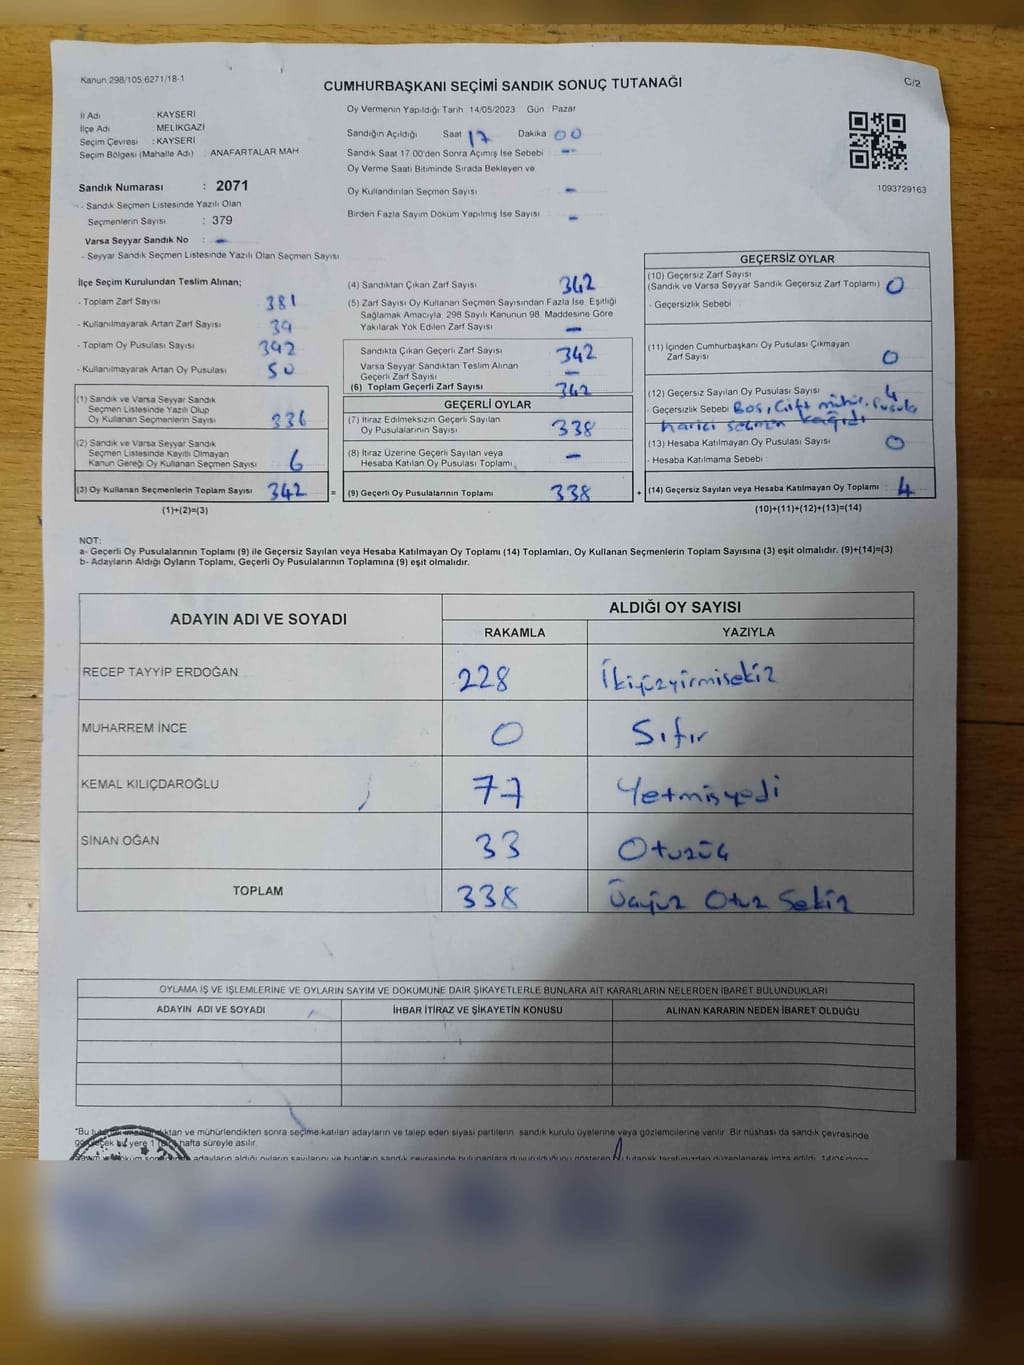 Kanun 298/105 6271/18-1
CUMHURBAŞKANI SEÇİMİ SANDIK SONUÇ TUTANAĞI
C/2
İl Adı : KAYSERİ
İlçe Adı : MELİKGAZİ
Seçim Çevresi : KAYSERİ
Seçim Bölgesi (Mahalle Adı) ANAFARTALAR MAH.
Sandık Numarası : 2071
- Sandık Seçmen Listesinde Yazılı Olan
Seçmenlerin Sayısı : 379
Varsa Seyyar Sandık No : -
- Seyyar Sandık Seçmen Listesinde Yazılı Olan Seçmen Sayısı
Oy Vermenin Yapıldığı Tarih 14/05/2023 Gün Pazar
Sandığın Açıldığı Saat 17 Dakika 00
Sandık Saat 17 00'den Sonra Açımış İse Sebebi -
Oy Verme Saati Bitiminde Sırada Bekleyen ve
Oy Kullandırılan Seçmen Sayısı -
Birden Fazla Sayım Döküm Yapılmış İse Sayısı -
1093729163
İlçe Seçim Kurulundan Teslim Alınan;
- Toplam Zarf Sayısı 381
- Kullanılmayarak Artan Zarf Sayısı 39
- Toplam Oy Pusulası Sayısı 392
- Kullanılmayarak Artan Oy Pusulası 50
(1) Sandık ve Varsa Seyyar Sandık
Seçmen Listesinde Yazılı Olup
Oy Kullanan Seçmenlerin Sayısı 336
(2) Sandık ve Varsa Seyyar Sandık
Seçmen Listesinde Kayıtlı Olmayan
Kanun Gereği Oy Kullanan Seçmen Sayısı 6
(3) Oy Kullanan Seçmenlerin Toplam Sayısı 342
(1)+(2)=(3)
(4) Sandıktan Çıkan Zarf Sayısı 342
(5) Zarf Sayısı Oy Kullanan Seçmen Sayısından Fazla İse, Eşitliği
Sağlamak Amacıyla, 298 Sayılı Kanunun 98. Maddesine Göre
Yakılarak Yok Edilen Zarf Sayısı -
Sandıkta Çıkan Geçerli Zarf Sayısı 342
Varsa Seyyar Sandıktan Teslim Alınan
Geçerli Zarf Sayısı -
(6) Toplam Geçerli Zarf Sayısı 342
GEÇERLİ OYLAR
(7) İtiraz Edilmeksizin Geçerli Sayılan
Oy Pusulalarının Sayısı 338
(8) İtiraz Üzerine Geçerli Sayılan veya
Hesaba Katılan Oy Pusulası Toplamı -
= (9) Geçerli Oy Pusulalarının Toplamı 338
GEÇERSİZ OYLAR
(10) Geçersiz Zarf Sayısı
(Sandık ve Varsa Seyyar Sandık Geçersiz Zarf Toplamı) 0
- Geçersizlik Sebebi
(11) İçinden Cumhurbaşkanı Oy Pusulası Çıkmayan
Zarf Sayısı 0
(12) Geçersiz Sayılan Oy Pusulası Sayısı 4
- Geçersizlik Sebebi Boş, Çift mühür, Pusula
harici seçmen kağıdı
(13) Hesaba Katılmayan Oy Pusulası Sayısı 0
- Hesaba Katılmama Sebebi
+ (14) Geçersiz Sayılan veya Hesaba Katılmayan Oy Toplamı 4
(10)+(11)+(12)+(13)=(14)
NOT:
a- Geçerli Oy Pusulalarının Toplamı (9) ile Geçersiz Sayılan veya Hesaba Katılmayan Oy Toplamı (14) Toplamları, Oy Kullanan Seçmenlerin Toplam Sayısına (3) eşit olmalıdır. (9)+(14)=(3)
b- Adayların Aldığı Oyların Toplamı, Geçerli Oy Pusulalarının Toplamına (9) eşit olmalıdır.
ADAYIN ADI VE SOYADI
ALDIĞI OY SAYISI
RAKAMLA YAZIYLA
RECEP TAYYİP ERDOĞAN 228 İkiyüzyirmisekiz
MUHARREM İNCE 0 Sıfır
KEMAL KILIÇDAROĞLU 77 Yetmişyedi
SİNAN OĞAN 33 Otuzüç
TOPLAM 338 Üçyüz Otuz Sekiz
OYLAMA İŞ VE İŞLEMLERİNE VE OYLARIN SAYIM VE DÖKÜMÜNE DAİR ŞİKAYETLERLE BUNLARA AİT KARARLARIN NELERDEN İBARET BULUNDUKLARI
ADAYIN ADI VE SOYADI İHBAR İTİRAZ VE ŞİKAYETİN KONUSU ALINAN KARARIN NEDEN İBARET OLDUĞU
*Bu ve mühürlendikten sonra seçime katılan adayların ve talep eden siyasi partilerin, sandık kurulu üyelerine veya gözlemcilerine verilir. Bir nüshası da sandık çevresinde
yere 1 hafta süreyle asılır.
adayların aldığı oyların sayılarını ve bunların sandık çevresinde bulunanlara duyurulduğunu gösteren tutanak tarafımızdan düzenlenerek imza edildi.